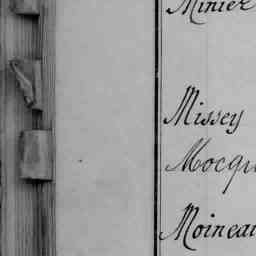 Minier
Missey
Mocqu
Moineau